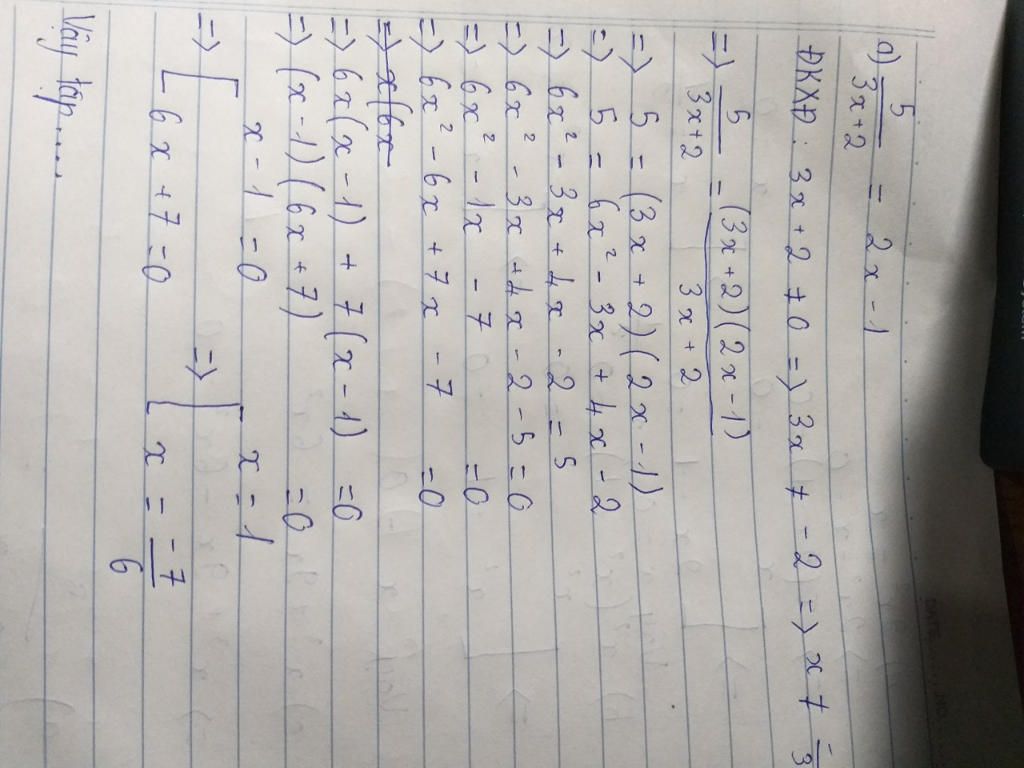 a) 5/(3x+2) = 2x - 1
ĐKXĐ: 3x + 2 ≠ 0 => 3x ≠ -2 => x ≠ -/3
=> 5/(3x+2) = (3x+2)(2x-1)/(3x+2)
=> 5 = (3x + 2)(2x - 1)
=> 5 = 6x² - 3x + 4x - 2
=> 6x² - 3x + 4x - 2 = 5
=> 6x² - 3x + 4x - 2 - 5 = 0
=> 6x² - 1x - 7 = 0
=> 6x² - 6x + 7x - 7 = 0
=> x(6x
=> 6x(x - 1) + 7(x - 1) = 0
=> (x - 1)(6x + 7) = 0
=> [ x - 1 = 0 => [ x = 1
6x + 7 = 0 x = -7/6
Vậy tập.....